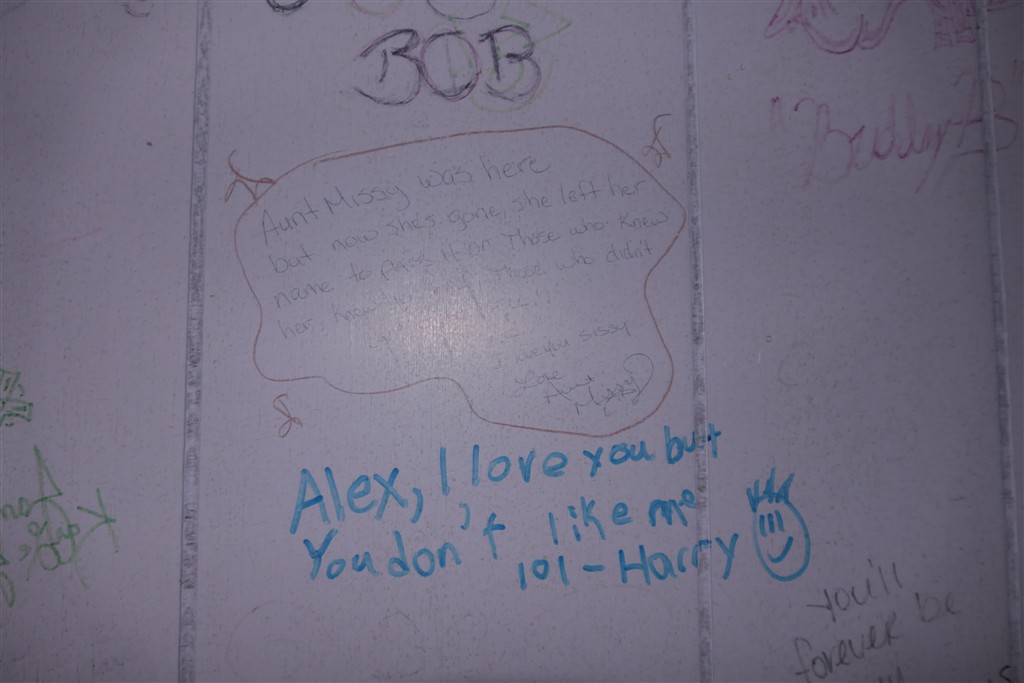 BOB
"Buddy AB"
Aunt Missy was here
but now she's gone, she left her
name to pass it on Those who knew
her, knew Those who didn't
I love you sissy
Love
Aunt
Missy
Alex, I love you but
You don't like me
101 - Harry
you'll
forever be